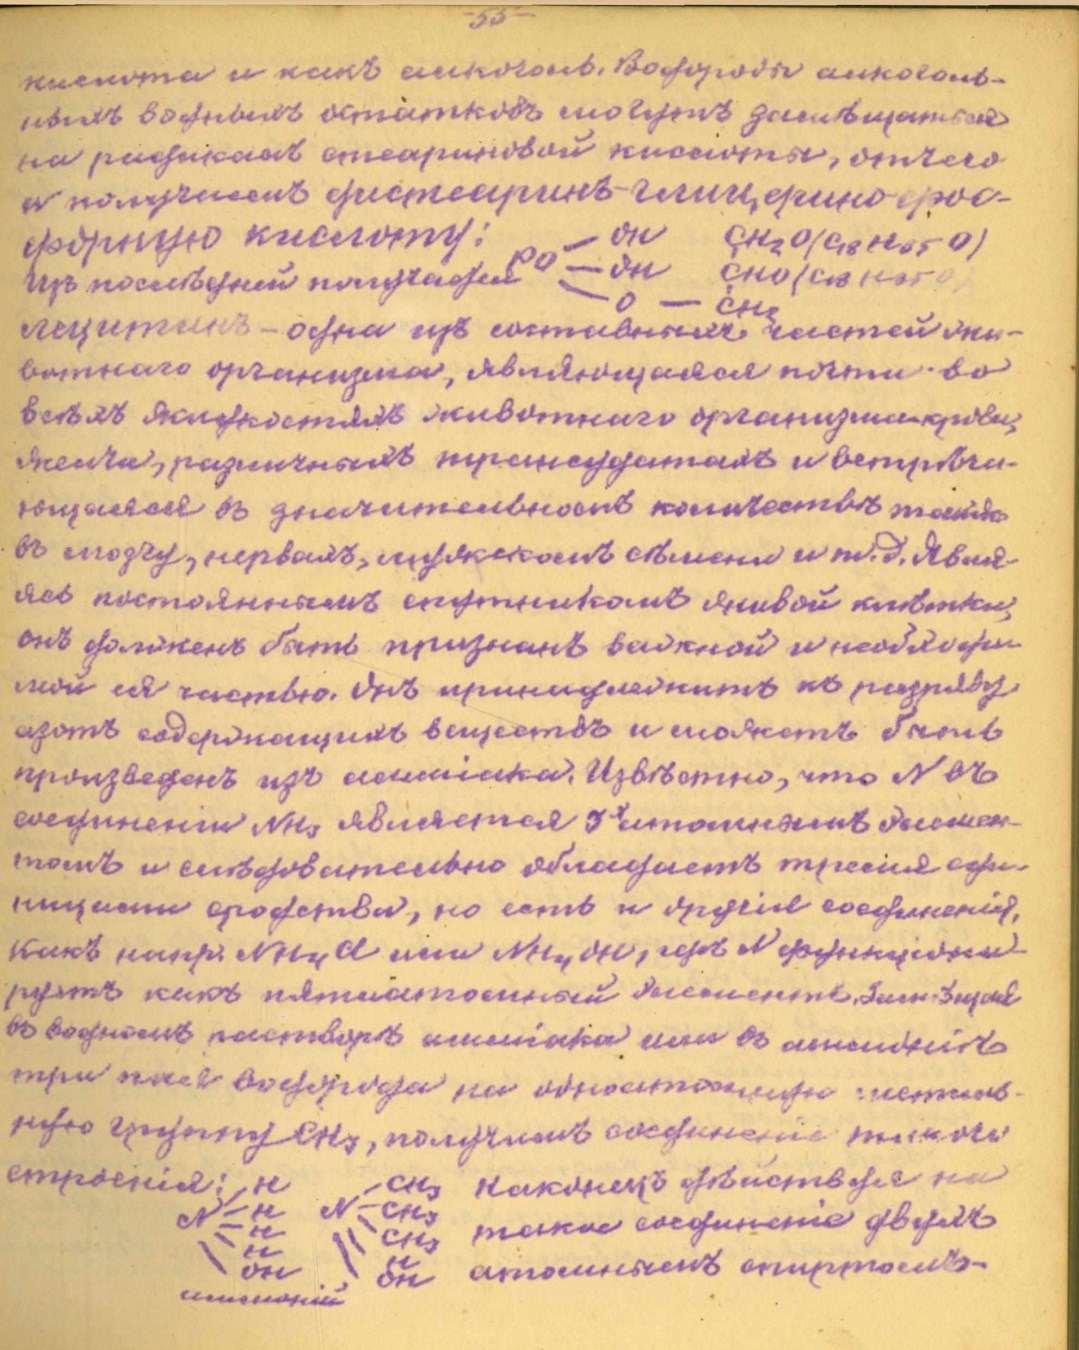 -55-
кислота и какъ алкоголь. Водороды алкоголь-
ныхъ водныхъ остатковъ могутъ замѣщаться
на радикалъ стеариновой кислоты, отчего
и получаемъ дистеаринъ-глицерино фос-
форную кислоту:
PO OH CH2O(C18H35O)
Изъ послѣдней получается OH CHO(C18H35O)
O — CH2
лецитинъ - одна изъ составныхъ частей жи-
вотнаго организма, являющаяся почти во
всѣхъ жидкостяхъ животнаго организма крови,
желчи, различныхъ трансудатахъ и встрѣча-
ющаяся въ значительномъ количествѣ также
въ мозгу, нервахъ, мужскомъ сѣмени и т.д. Явля-
ясь постояннымъ спутникомъ живой клѣтки,
онъ долженъ быть признанъ важной и необходи-
мой ея частью. Онъ принадлежитъ къ разряду
азотъ содержащихъ веществъ и можетъ быть
произведенъ изъ амміака. Извѣстно, что N въ
соединеніи NH3 является 3х атомнымъ элемен-
томъ и слѣдовательно обладаетъ тремя еди-
ницами сродства, но есть и другія соединенія,
какъ напр. NH4Cl или NH4OH, гдѣ N функціони-
руетъ какъ пятиатомный элементъ.
въ водномъ растворѣ амміака или въ аммоніѣ
три пая водорода на одноатомную метиль-
ную группу CH3, получимъ соединеніе такого
строенія: H CH3 Наконецъ дѣйствуя на
N H N CH3 такое соединеніе двухъ
H CH3
H H
OH OH атомнымъ спиртомъ-
аммоній